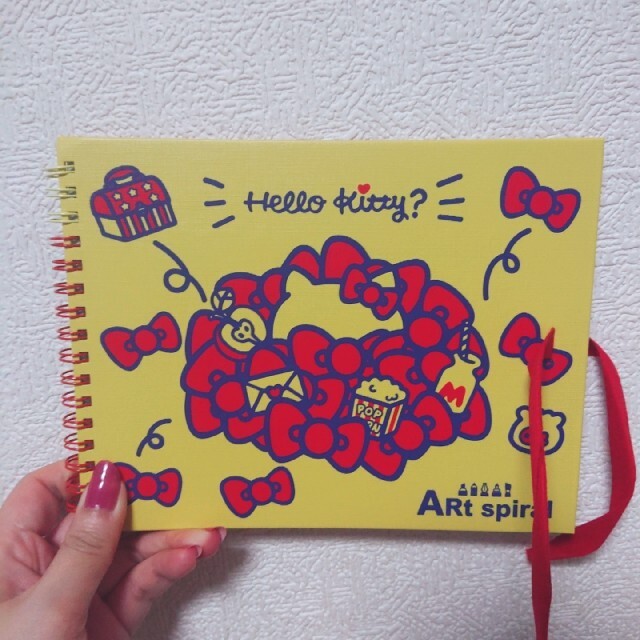 Hello Kitty?
M
POP
ARt spiral